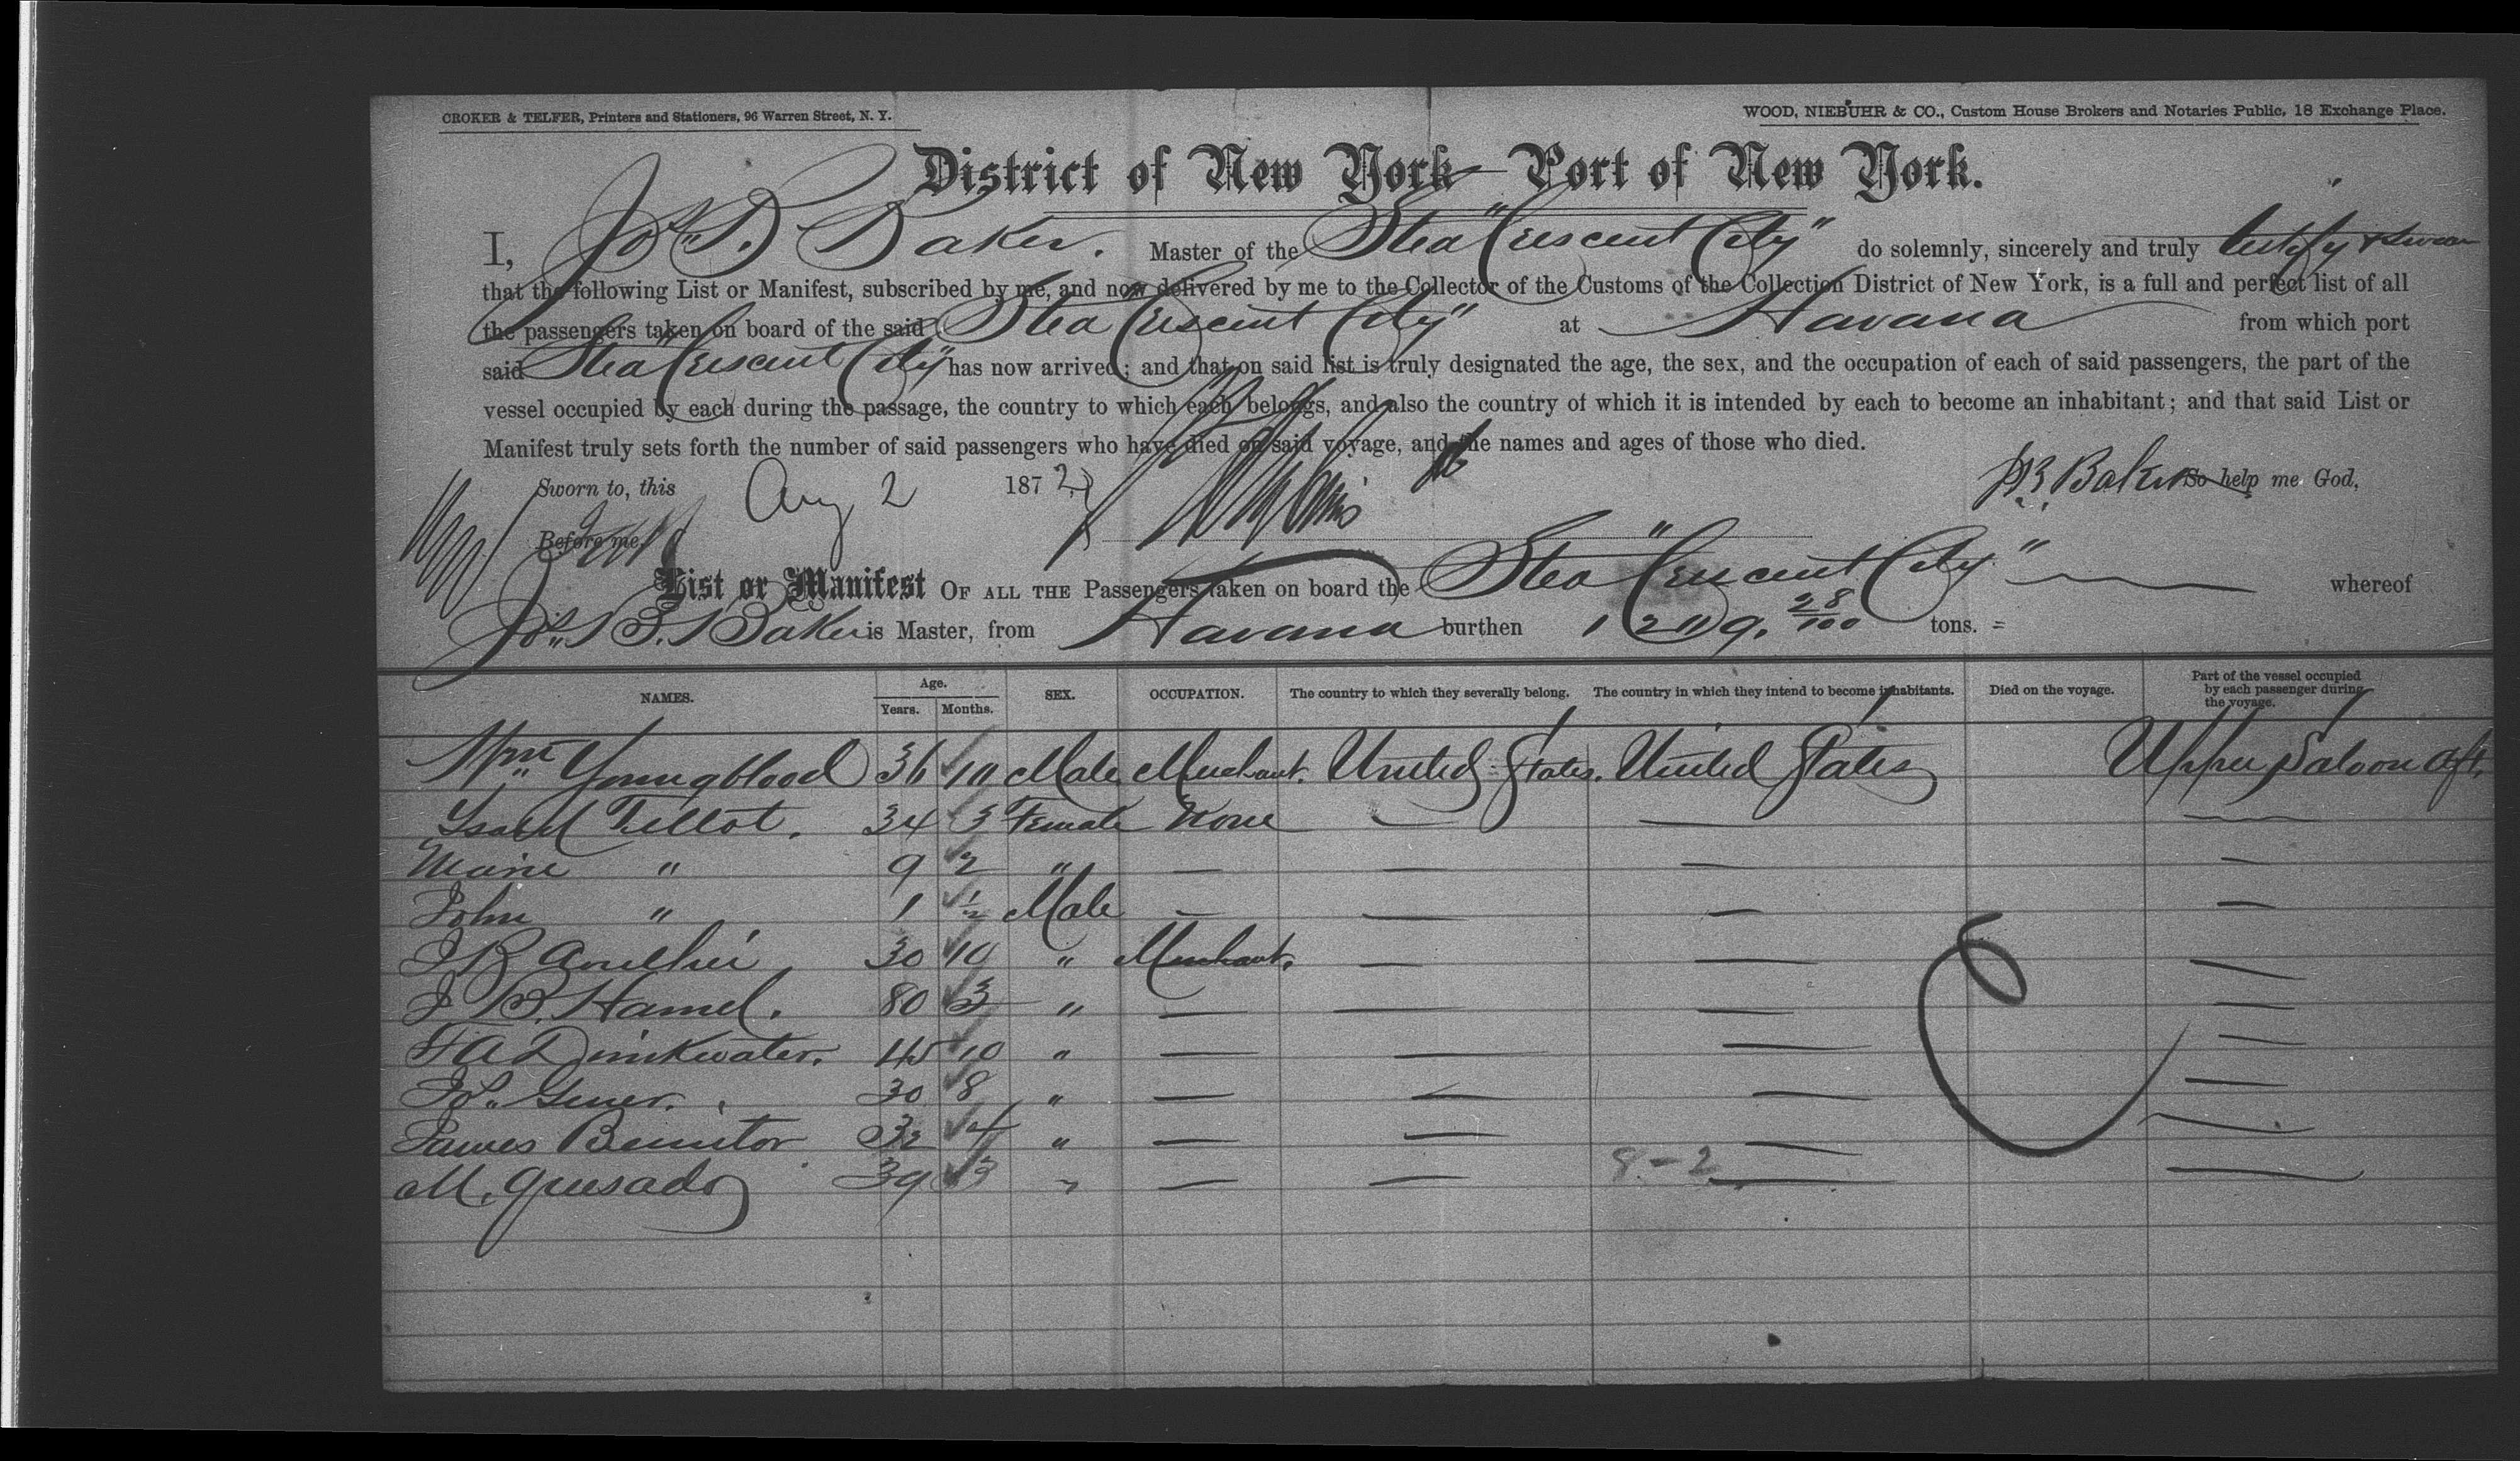 CROKER & TELFER, Printers and Stationers, 96 Warren Street, N. Y.
WOOD, NIEBUHR & CO., Custom House Brokers and Notaries Public, 18 Exchange Place.
District of New York—Port of New York.
I, Jos. B Baker. Master of the Stea "Crescent City" do solemnly, sincerely and truly Certify & swear
that the following List or Manifest, subscribed by me, and now delivered by me to the Collector of the Customs of the Collection District of New York, is a full and perfect list of all
the passengers taken on board of the said Stea "Crescent City" at Havana from which port
said Stea "Crescent City" has now arrived; and that on said list is truly designated the age, the sex, and the occupation of each of said passengers, the part of the
vessel occupied by each during the passage, the country to which each belongs, and also the country of which it is intended by each to become an inhabitant; and that said List or
Manifest truly sets forth the number of said passengers who have died on said voyage, and the names and ages of those who died.
Sworn to, this Aug 2 1872 J B. Baker So help me God,
Before me,
List or Manifest OF ALL THE Passengers taken on board the Stea "Crescent City" whereof
Jos. B. Baker is Master, from Havana burthen tons.
NAMES. Age. Years. Months. SEX. OCCUPATION. The country to which they severally belong. The country in which they intend to become inhabitants. Died on the voyage. Part of the vessel occupied by each passenger during the voyage.
Wm Youngblood 36 10 Male Merchant. United States. United States Upper Saloon aft.
Tellot. 34 3 Female None — — —
Marie " 9 2 " — — — —
John " 1 ½ Male — — — —
J B 30 10 " Merchant. — — —
J B. Hamel. 80 3 " — — — —
F A Drinkwater. 45 10 " — — — —
Jos. Gener. 30 8 " — — — —
James 32 4 " — — — —
M. Quesado 39 3 " — — — —
8-2